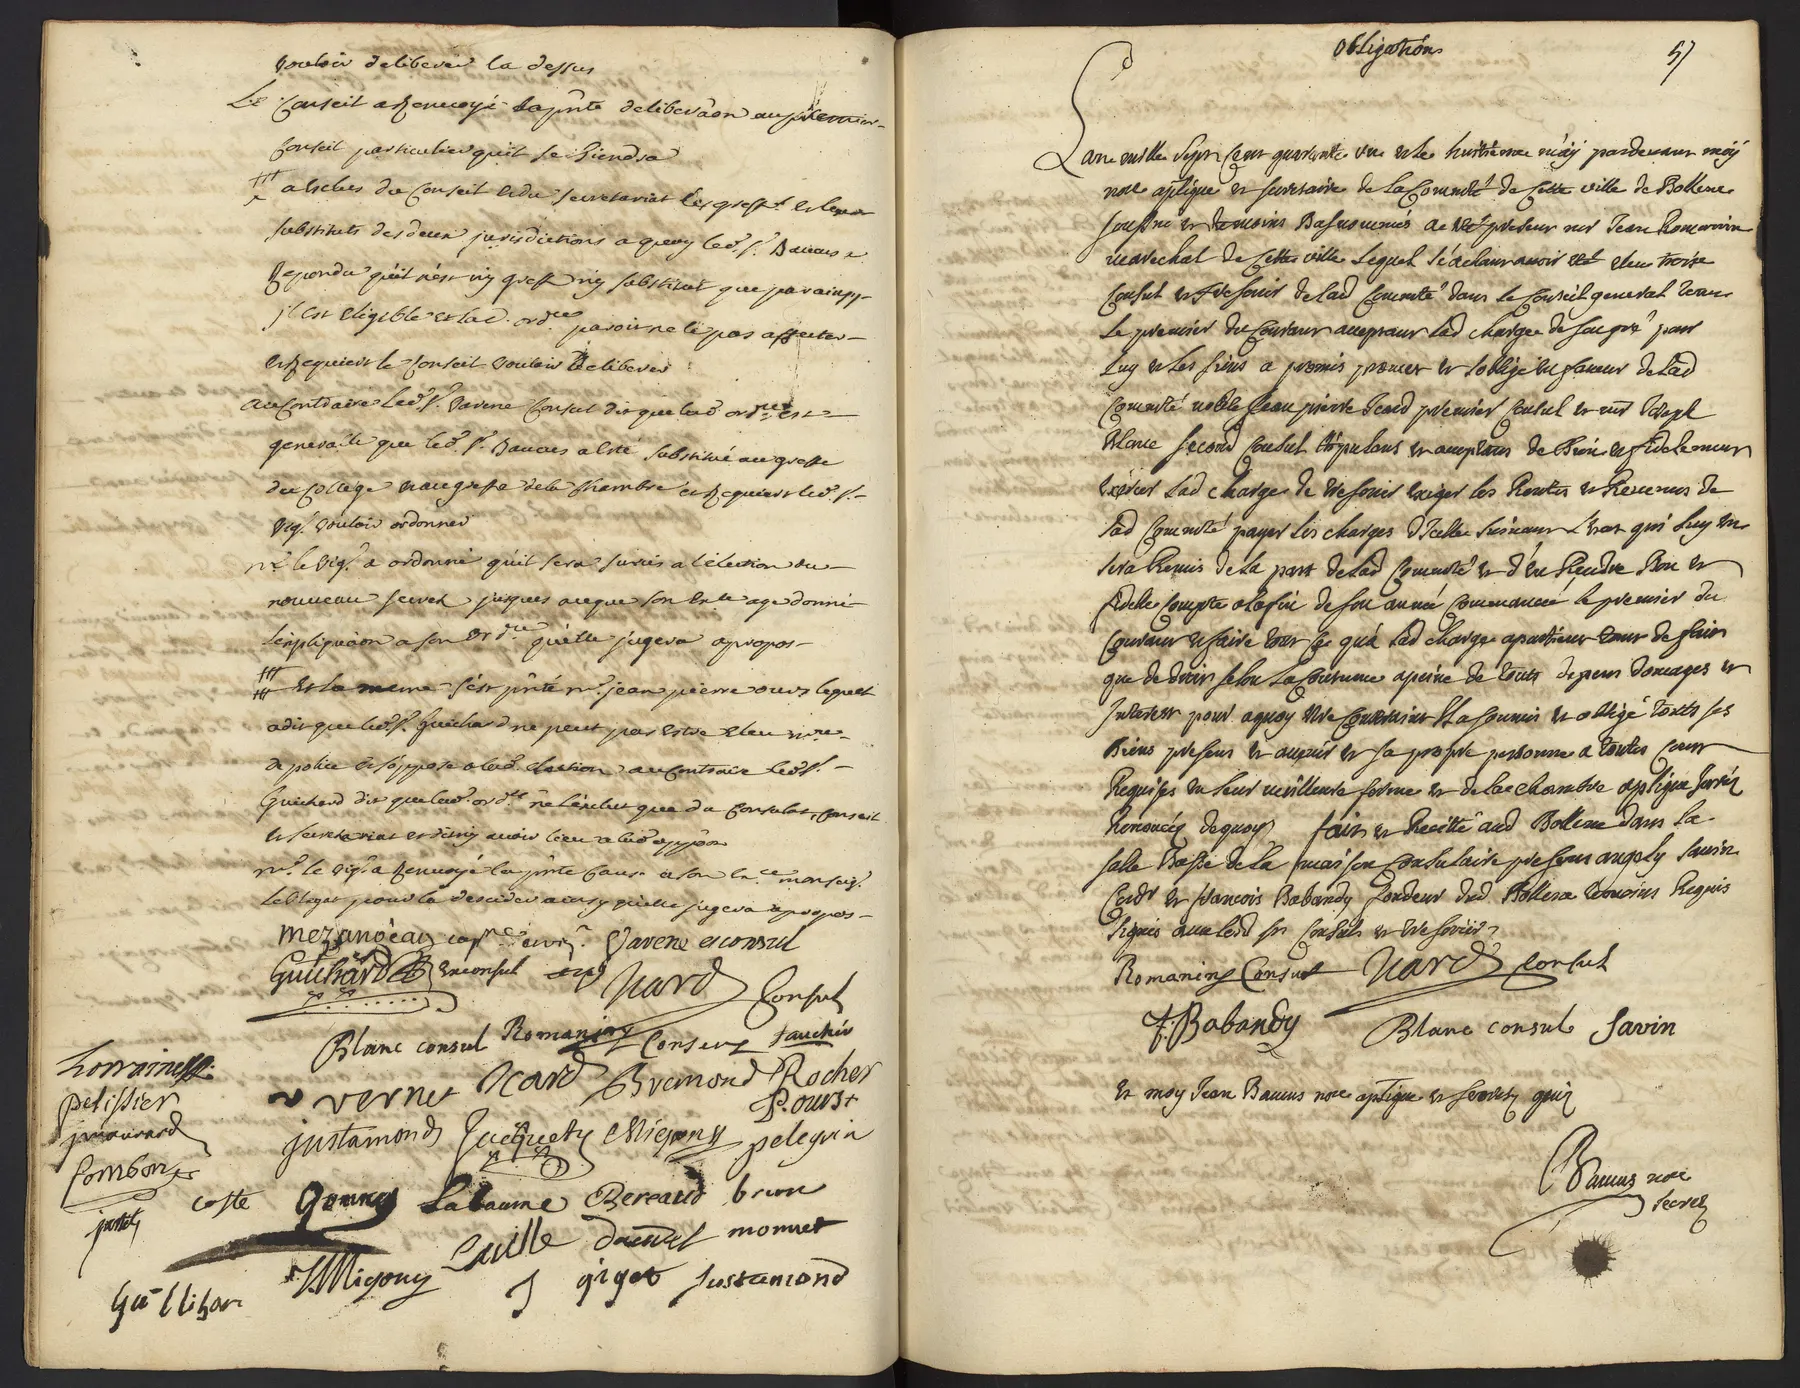 vouloir deliberer la dessus
Le Conseil a Renvoyé la pnte deliberaon au premier
Conseil particulier qu'il se tiendra
a triches du Conseil et du secretariat les greff.s et leurs
substituts des deux jurisdictions a quoy led. s.r Bauus a
Repondu qu'il n'est n'y greff n'y substitut que par ainsy
jl est eligible et lad. ord.ce paroit ne le pas affecter
et Requiert le Conseil vouloir deliberer
au Contraire led. s.r Davene Consul dit que lad. ord.ce est
generalle que led. s.r Bauus a eté substitué au greffe
du College et au greffe de la Chambre et Requiert led. s.r
vig.r vouloir ordonner
m.r le vig.r a ordonné qu'il sera sursis a l'election du
nouveau secret.re jusques a ce que son Ex.ce aye donné
l'expliquaon a son ord.ce qu'elle jugera apropos
et la meme s'est pnté m.r jean pierre ours lequel
a dit que led. s.r Guichard ne peut pas estre eleu
de police et s'oppose a lad. election au Contraire led. s.r
Guichard dit que lad. ord.ce ne l'exclut que du Consulat, Conseil
et secretariat et n'y avoir lieu a lad. oppôon
m.r le vig.r a Renvoyé la pnte Cause a son Ex.ce monseig.r
le Legat pour la descider ainsy qu'elle jugera apropos
Guichard exconsul Icard Consul
Blanc consul Romaning Consers faucher
Lorraine
vernet Icard Bremond Rocher
pelissier
P. ours
justamond Jacquety Migony pelegrin
Combon
coste Labaume Bereaud brun
justet
Laville monnet
J. Migony giget Justamond
Guilliber
Obligations 57
L'an mille sept Cent quarante un et le huitieme may pardevant moy
nore aptique et secretaire de la Comunité de Cette ville de Bollene
soussné et temoins Basnommés a eté present mr Jean Romanin
marechal de Cette ville lequel sachant avoir eté eleu troise
Consul et tresorier de lad Comunité dans le Conseil general tenu
le premier du Courant acceptant lad charge de son gré pour
Luy et les siens a promis promet et s'oblige en faveur de lad
Comunité noble jean pierre Icard premier Consul et mr Joseph
Blanc second Consul stipulans et acceptans de Bien et fidelement
exercer lad charge de tresorier exiger les Rentes et Revenus de
lad Comunité payer les charges d'Icelle suivant l'etat qui luy en
sera Remis de la part de lad Comunité et d'en Rendre Bon et
fidelle Compte a la fin de son année Commancée le premier du
Courant et faire tout Ce qu'a lad charge apartient tant de fait
que de droit selon la Coutume a peine de touts depens domages et
Interest pour a quoy estre Contraint Il a soumis et obligé touts ses
Biens presens et auenir et sa propre personne a toutes Cours
Requises en leur meilleure forme et de la chambre aptique Jurés
Renoncés dequoy fait et Recitté aud Bollene dans la
salle Basse de la maison Consulaire presens angely Savin
Cordr et francois Babandy fondeur dud Bollene temoins Requis
signés auec lesd srs Consuls et tresorier
Romaning Consul Icard Consul
F. Babandy Blanc consul Savin
Et moy Jean Bauus nore aptique et secret.
Bauus nore
secre